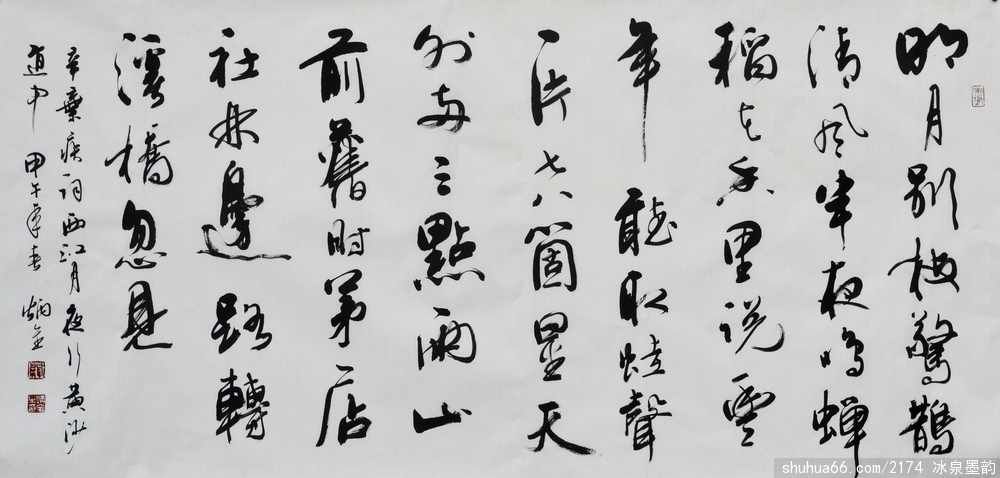 明月别枝驚鵲
清风半夜鳴蝉
稻花香里说豐
年聽取蛙聲
一片七八箇星天
外两三點雨山
前舊時茅店
社林邊路轉
溪橋忽見
辛棄疾词西江月夜行黄沙
道中 甲午年春 炳金
shuhua66.com/2174 冰泉墨韵